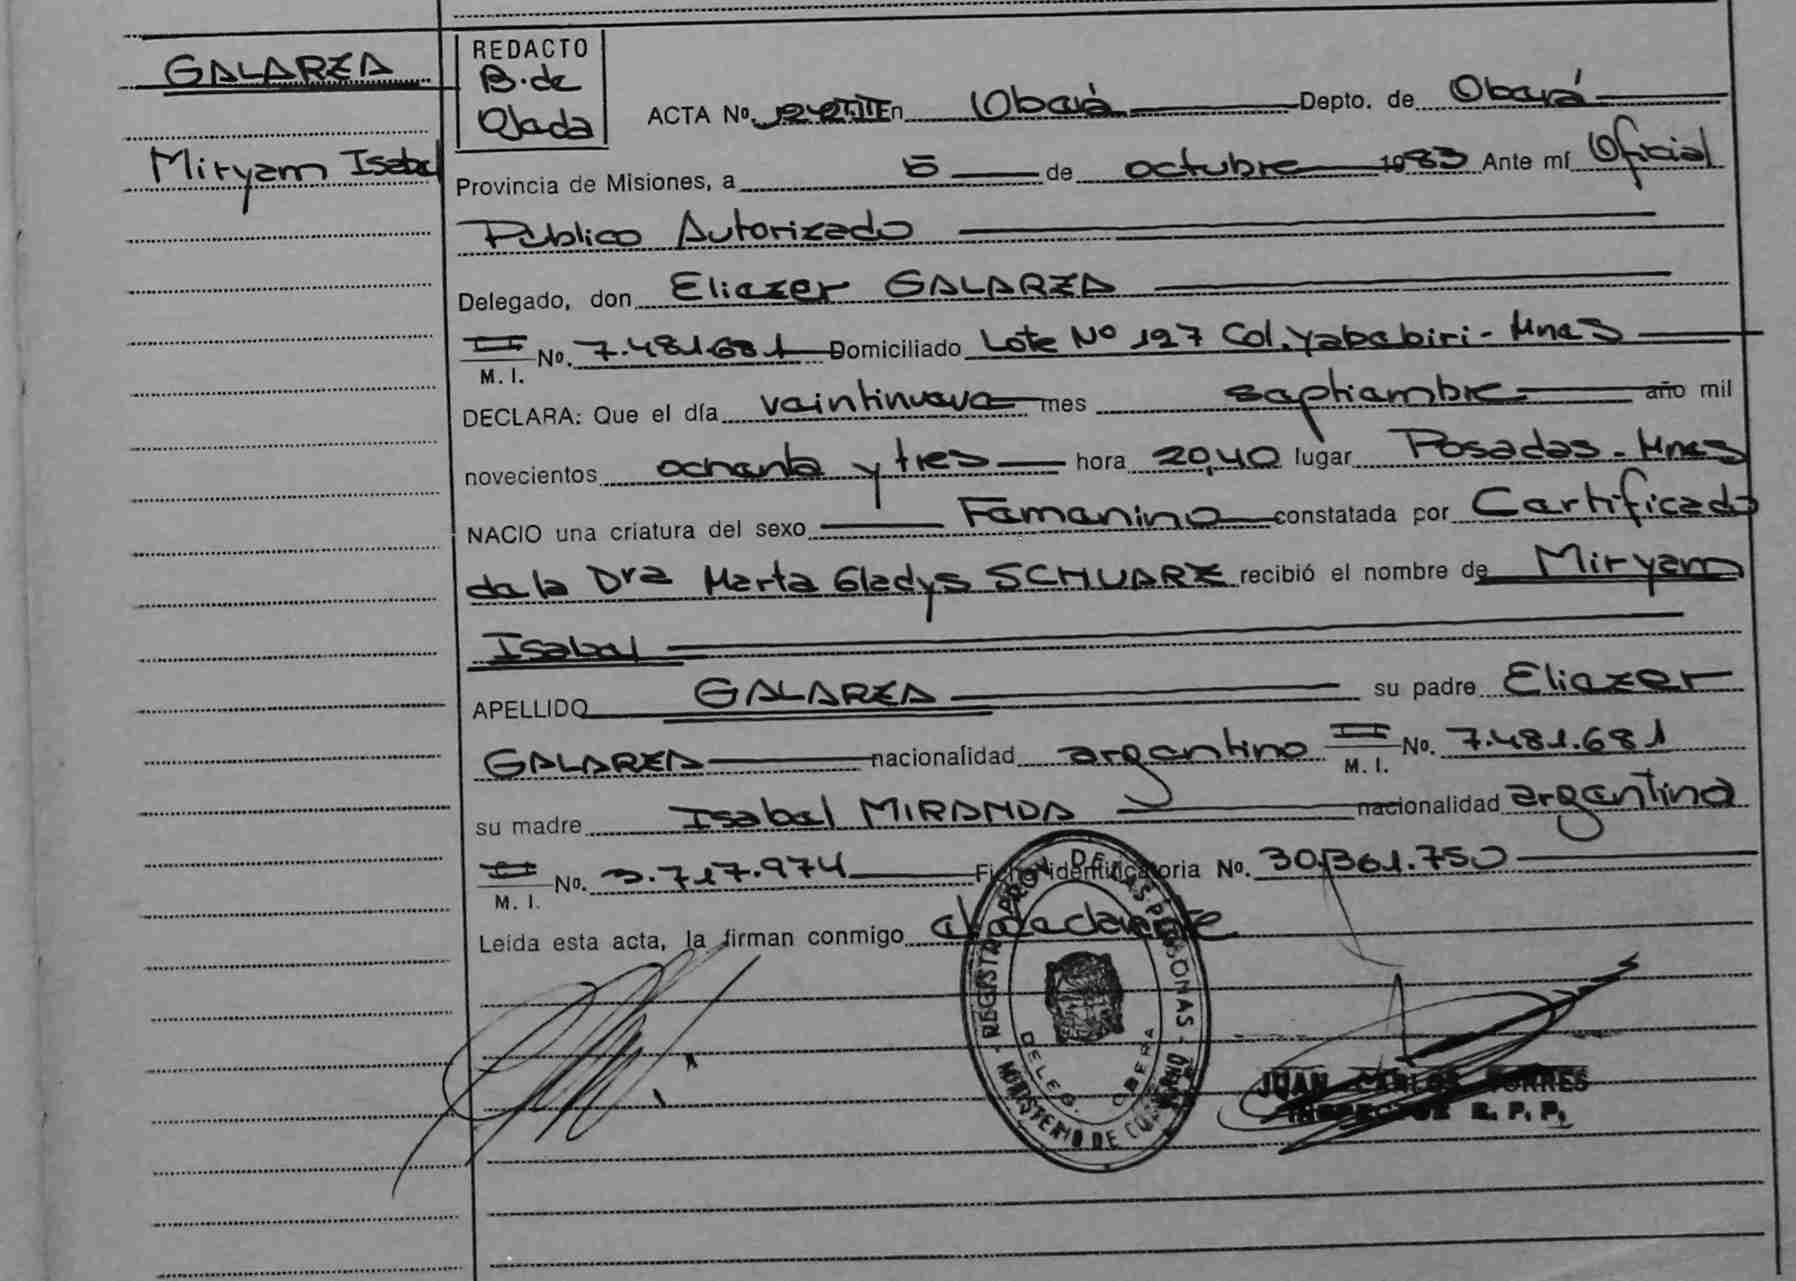 GALARZA
Miryam Isabel
REDACTO
B. de
Ojeda
ACTA No. En Oberá Depto. de Oberá
Provincia de Misiones, a 5 de octubre 1983 Ante mí Oficial
Público Autorizado
Delegado, don Eliezer GALARZA
M. I. No. 7.481.681 Domiciliado Lote Nº 127 Col. Yabebiri - Mnes
DECLARA: Que el día veintinueve mes septiembre año mil
novecientos ochenta y tres hora 20,40 lugar Posadas - Mnes
NACIO una criatura del sexo Femenino constatada por Certificado
de la Dra Marta Gladys SCHUARZ recibió el nombre de Miryam
Isabel
APELLIDO GALARZA su padre Eliezer
GALARZA nacionalidad argentino M. I. No. 7.481.681
su madre Isabel MIRANDA nacionalidad argentina
M. I. No. 3.717.974 Ficha identificatoria No. 30.361.750
Leída esta acta, la firman conmigo el declarante
REGISTRO PROV. DE LAS PERSONAS - MINISTERIO DE
DELEG. OBERA
JUAN CARLOS TORRES
INSPECTOR R. P. P.